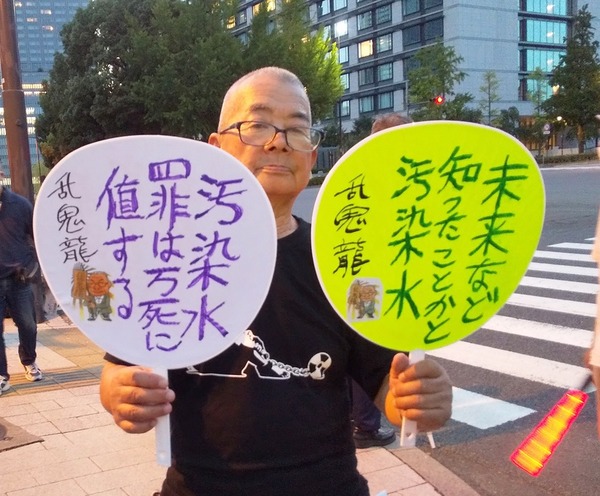 汚染水
罪は万死に
値する
乱鬼龍
未来など
知ったことかと
汚染水
乱鬼龍